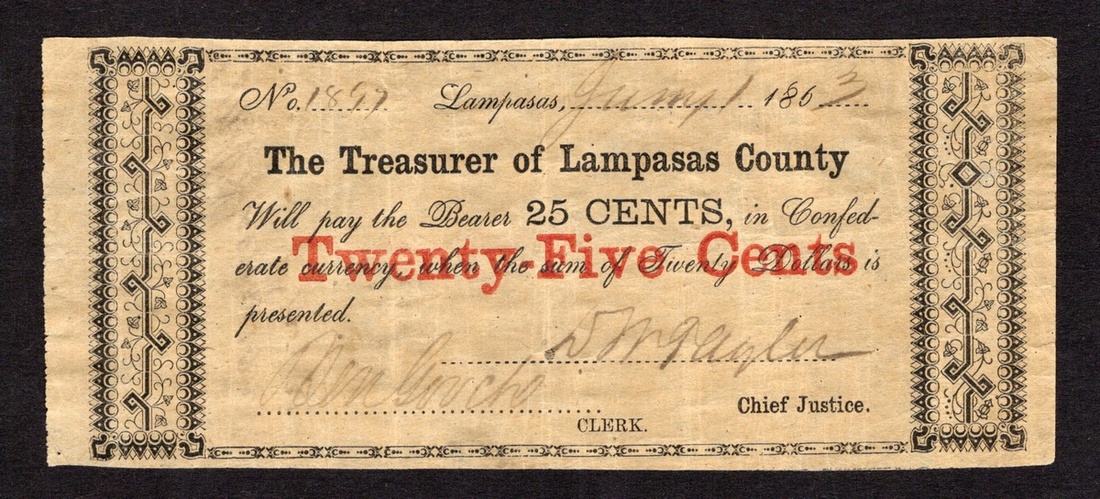 No. 1897 Lampasas, 1863
The Treasurer of Lampasas County
Will pay the Bearer 25 CENTS, in Confed-
Twenty-Five Cents
erate currency, when the sum of Twenty Dollars is
presented.
Chief Justice.
CLERK.